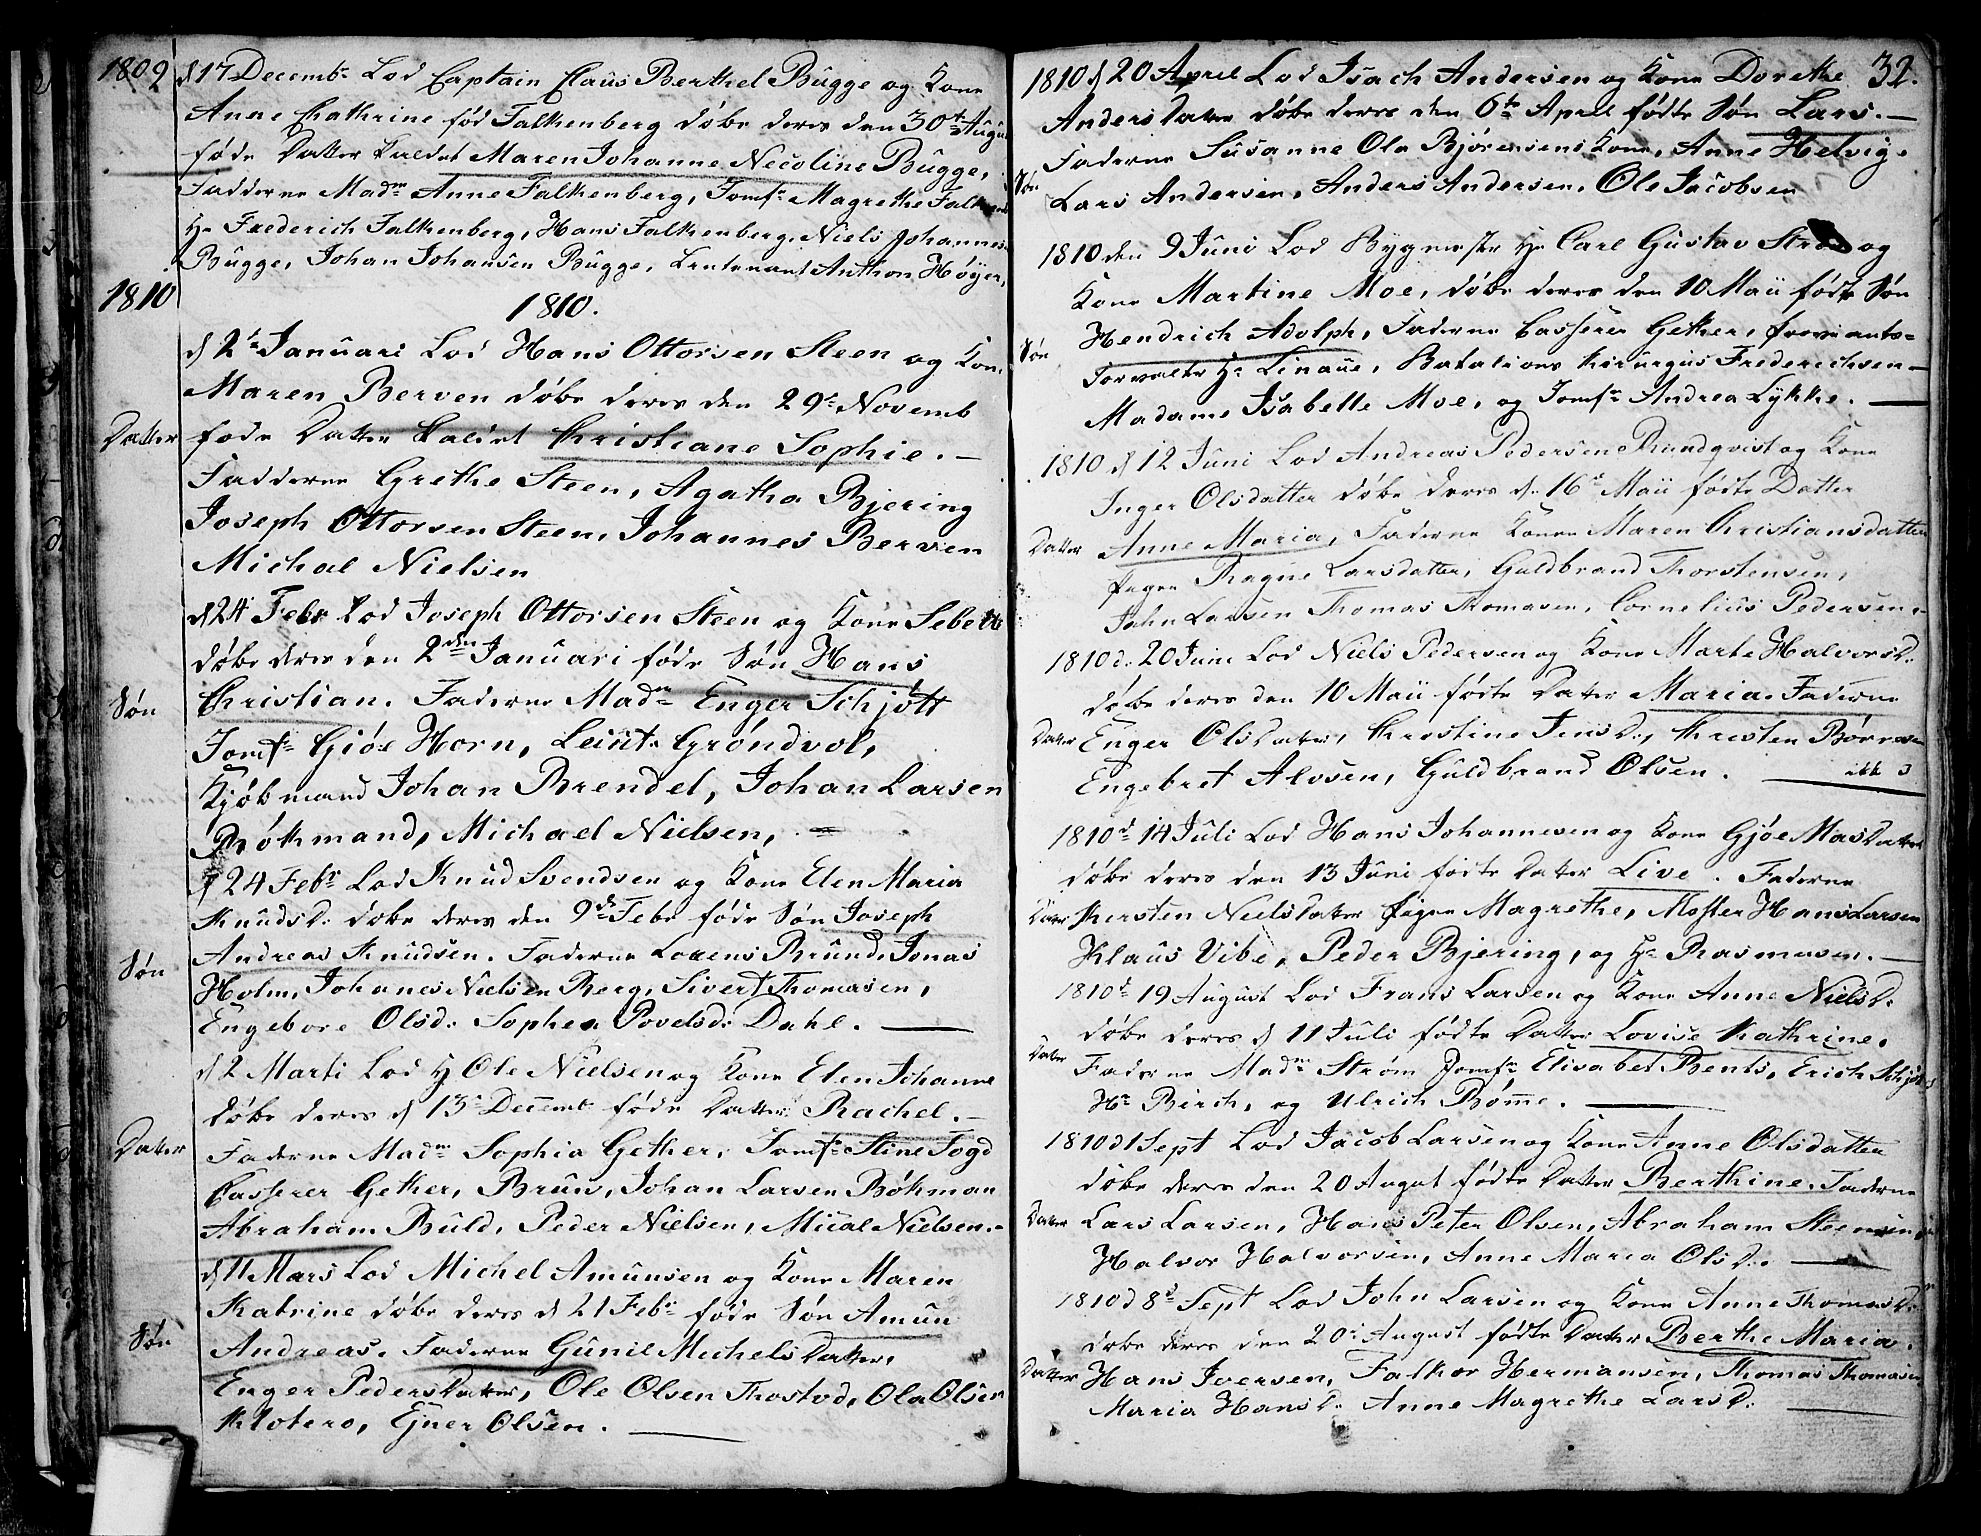 1809
d 17 Decembr Lod Captain Claus Berthel Bugge og Kone
Anne Chathrine fød Falkenberg døbe deres den 30te Augu
føde Datter kaldet Maren Johanne Necoline Bugge,
Fadderne Madm Anne Falkenberg, Jomfr Magrethe Falken
Hr Frederich Falkenberg, Hans Falkenberg, Niels Johannes
Bugge, Johan Johansen Bugge, Leutenant Anthon Høyer,
1810
1810.
d 2te Januari Lod Hans Ottorsen Steen og Kone
Maren Berven døbe deres den 29de Novemb
Datter
føde Datter kaldet Christiane Sophie. –
Fadderne Grethe Steen, Agatha Bjering
Joseph Ottorsen Steen, Johannes Berven
Michal Nielsen
d 24 Febr Lod Joseph Ottorsen Steen og Kone
døbe deres den 2den Januari føde Søn Hans
Søn
Christian. Faderne Madm Enger Schjøtt
Jomfr Giøe Horn, Leint. Grøndvol,
Kjøbmand Johan Brendel, Johan Larsen
Bøkmand, Michael Nielsen,
d 24 Febr Lod Knud Svendsen og Kone Elen Maria
KnudsD. døbe deres den 9de Febr føde Søn Joseph
Søn
Andreas Knudsen. Faderne Lorens Brund, Jonas
Holm, Johanes Nielsen Berg, Sivert Thomasen,
Engebore Olsd. Sophea Povelsd. Dahl.
d 2 Marti Lod Hr Ole Nielsen og Kone Elen Johanne
døbe deres d 13de Decemb føde Datter Rachel. –
Datter
Faderne Madm Sophia Gether, Jomfr Stine Fogd
Casserer Gether, Bruun, Johan Larsen Bøkman
Abraham Buld, Peder Nielsen, Mical Nielsen. –
d 11 Mars Lod Michel Amunsen og Kone Maren
Katrine døbe deres d 21 Febr føde Søn Amun
Søn
Andreas. Faderne Gunil MichelsDatter,
Enger PedersDatter, Ole Olsen Thostvd, Ola Olsen
Klotero, Ejner Olsen.
32.
1810 d 20 April Lod Isach Andersen og Kone Dorethe
AndersDatter døbe deres den 6te April fødte Søn Lars. –
Søn
Faderne Susanne Ole Bjørensens Kone, Anne Helvig.
Lars Andersen, Anders Andersen, Ole Jacobsen
1810 den 9 Juni Lod Bygmester Hr Carl Gustav Strøm og
Kone Martine Moe, døbe deres den 10 Maii fødte Søn
Søn
Hendrich Adolph, Faderne Casserer Gether, proviants-
Forvalter Hr Linaue, Batalions kirurgus Frederichsen –
Madame Isabelle Moe, og Jomfr Andrea Lykke.
1810 d 12 Juni Lod Andreas Pedersen Rundqvist og Kone
Inger Olsdatter døbe deres d. 16de Maii fødte Datter
Datter
Anne Maria, Faderne Konen Maren Christiansdatter
Pigen Ragne Larsdatter, Guldbrand Thorstensen,
John Larsen Thomas Thomasen, Cornelius Pedersen.
1810 d. 20 Juni Lod Niels Pedersen og Kone Marte HalvorsD.
døbe deres den 10 Maii fødte Datter Maria. Faderne
Datter
Enger OlsDatter, Kirstine JensD., Kresten Børresen
Engebret Alvsen, Guldbrand Olsen.
1810 d 14 Juli Lod Hans Johannesen og Kone Gjøe MasDatter
døbe deres den 13 Juni fødte Datter Live. Faderne
Datter
Kersten NielsDatter Pigen Magrethe, Mester Hans Larsen
Klaus Vibe, Peder Bjering, og Hr Rasmusen. –
1810 d 19 August Lod Frans Larsen og Kone Anne NielsD.
døbe deres d 11 Juli fødte Datter Lovise Kathrine.
Datter
Faderne Madm Strøm Jomfr Elisabet Bents, Erich Schjøtt
Hr Birch, og Ulrich Bøme.
1810 d 1 Sept Lod Jacob Larsen og Kone Anne Olsdatter
døbe deres den 20 August fødte Datter Berthine. Faderne
Datter
Lars Larsen, Hans Peter Olsen, Abraham Steensen,
Halvor Halvorsen, Anne Maria OlsD.
1810 d 8de Sept Lod John Larsen og Kone Anne ThomasD.
døbe deres den 20de August fødte Datter Berthe Maria.
Datter
Hans Iversen, Falkor Hermansen, Thomas Thomasen
Maria HansD. Anne Magrethe LarsD.